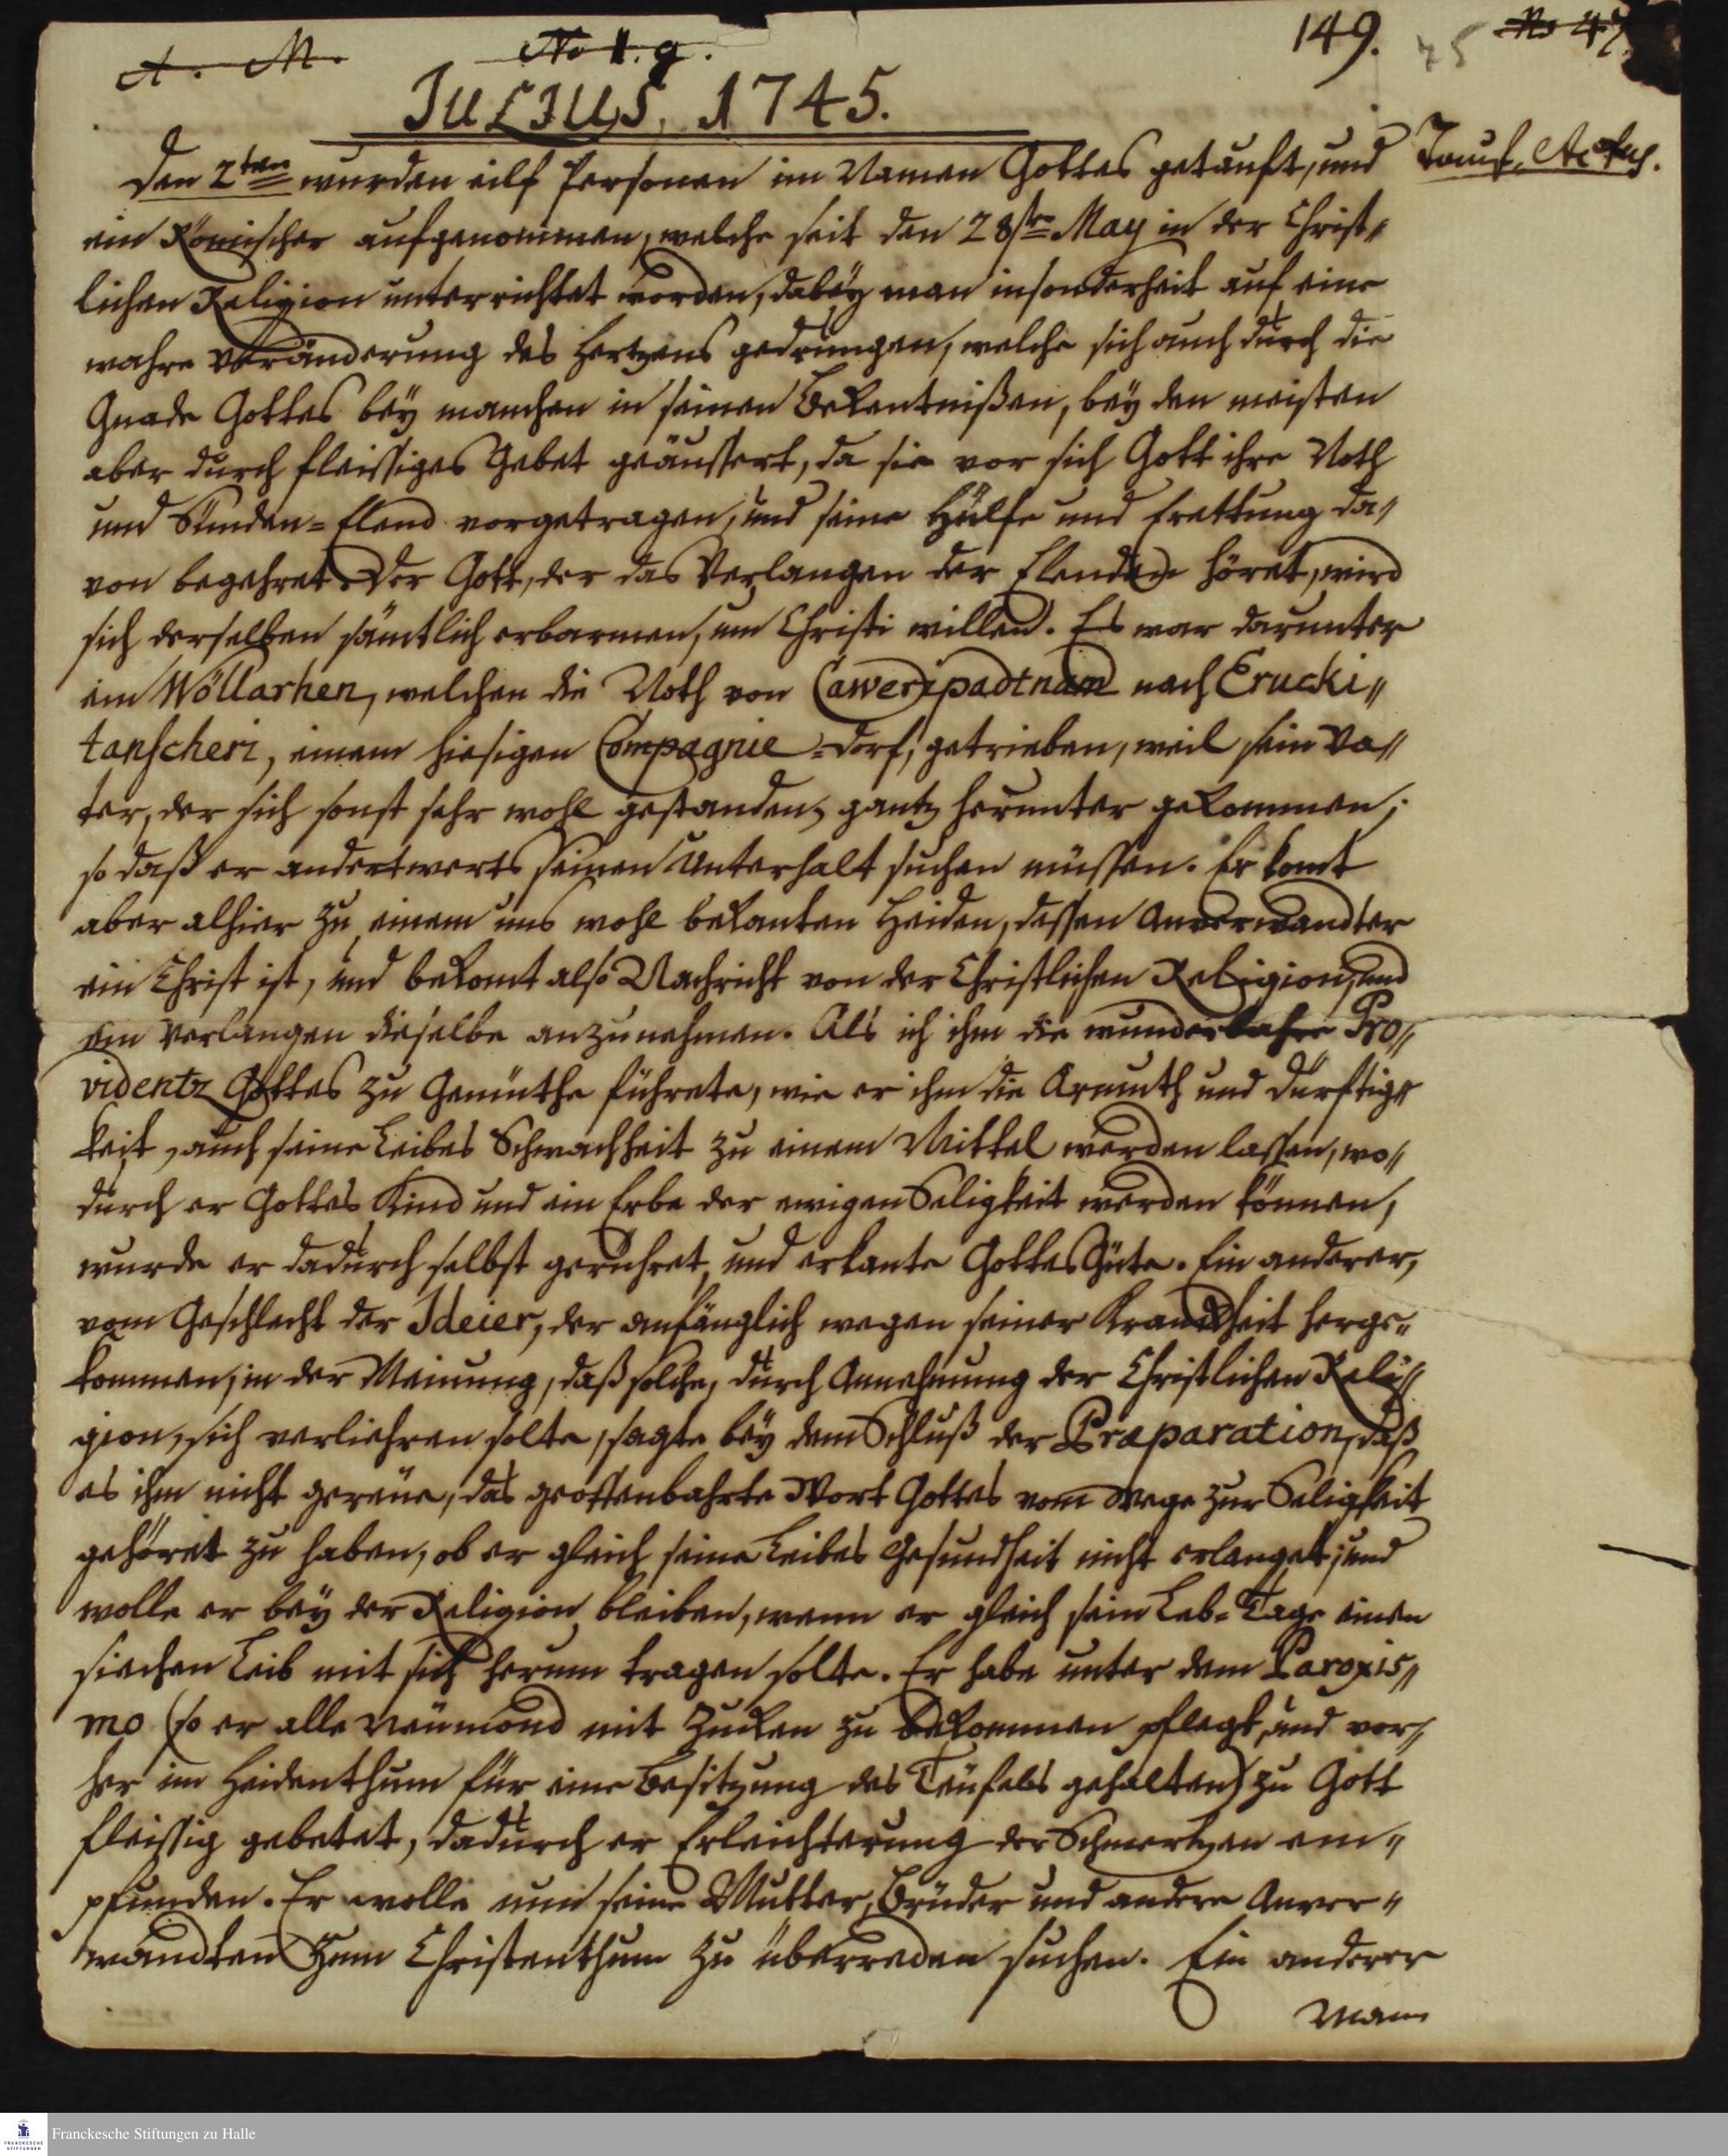 A. M. No 1. 9. 149. 75 No 47
JULIUS, 1745.
Den 2ten wurden eilf Personen im Namen Gottes getauft, und Tauf-Actus.
ein Römischer aufgenommen, welche seit den 28sten May in der Christ-
lichen Religion unterrichtet worden, dabey man insonderheit auf eine
wahre Veränderung des Hertzens gedrungen, welche sich auch durch die
Gnade Gottes bey manchen in seinen Bekentnißen, bey den meisten
aber durch fleissiges Gebet geäussert, da sie vor sich Gott ihre Noth
und Sünden-Elend vorgetragen, und seine Hülfe und Erettung da-
von begehret. Der Gott, der das Verlangen der Elenden höret, wird
sich derselben sämtlich erbarmen, um Christi willen. Es war darunter
ein Wöllarhen, welchen die Noth von Caweripadtnam nach Erucki-
tanscheri, einem hiesigen Compagnie-Dorf, getrieben, weil sein Va-
ter, der sich sonst sehr wohl gestanden, gantz herunter gekommen,
so daß er andertwerts seinen Unterhalt suchen müssen. Er komt
aber alhier zu einem uns wohl bekanten Heiden, dessen Anverwandter
ein Christ ist, und bekomt also Nachricht von der Christlichen Religion, und
ein Verlangen dieselbe anzunehmen. Als ich ihm die wunderbahre Pro-
videntz Gottes zu Gemüthe führete, wie er ihm die Armuth und Dürftig-
keit, auch seine Leibes Schwachheit zu einem Mittel werden lassen, wo-
durch er Gottes Kind und ein Erbe der ewigen Seligkeit werden können,
wurde er dadurch selbst gerühret, und erkante Gottes Güte. Ein anderer,
vom Geschlecht der Ideier, der anfänglich wegen seiner Kranckheit herge-
kommen, in der Meinung, daß solche, durch Annehmung der Christlichen Reli-
gion, sich verliehren solte, sagte bey dem Schluß der Præparation, daß
es ihm nicht gereüe, das geoffenbahrte Wort Gottes vom Wege zur Seligkeit
gehöret zu haben, ob er gleich seine Leibes Gesundheit nicht erlanget; und
wolle er bey der Religion bleiben, wenn er gleich sein Leb-Tage einen
siechen Leib mit sich herum tragen solte. Er habe unter dem Paroxis-
mo (so er alle Neümond mit Zucken zu bekommen pflegt, und vor-
her im Heidenthum für eine Besitzung des Teüfels gehalten) zu Gott
fleissig gebetet, dadurch er Erleichterung der Schmertzen em-
pfunden. Er wolle nun seine Mutter, Brüder und andere Anver-
wandten zum Christenthum zu überreden suchen. Ein anderer
Mann
Franckesche Stiftungen zu Halle
FRANCKESCHE STIFTUNGEN